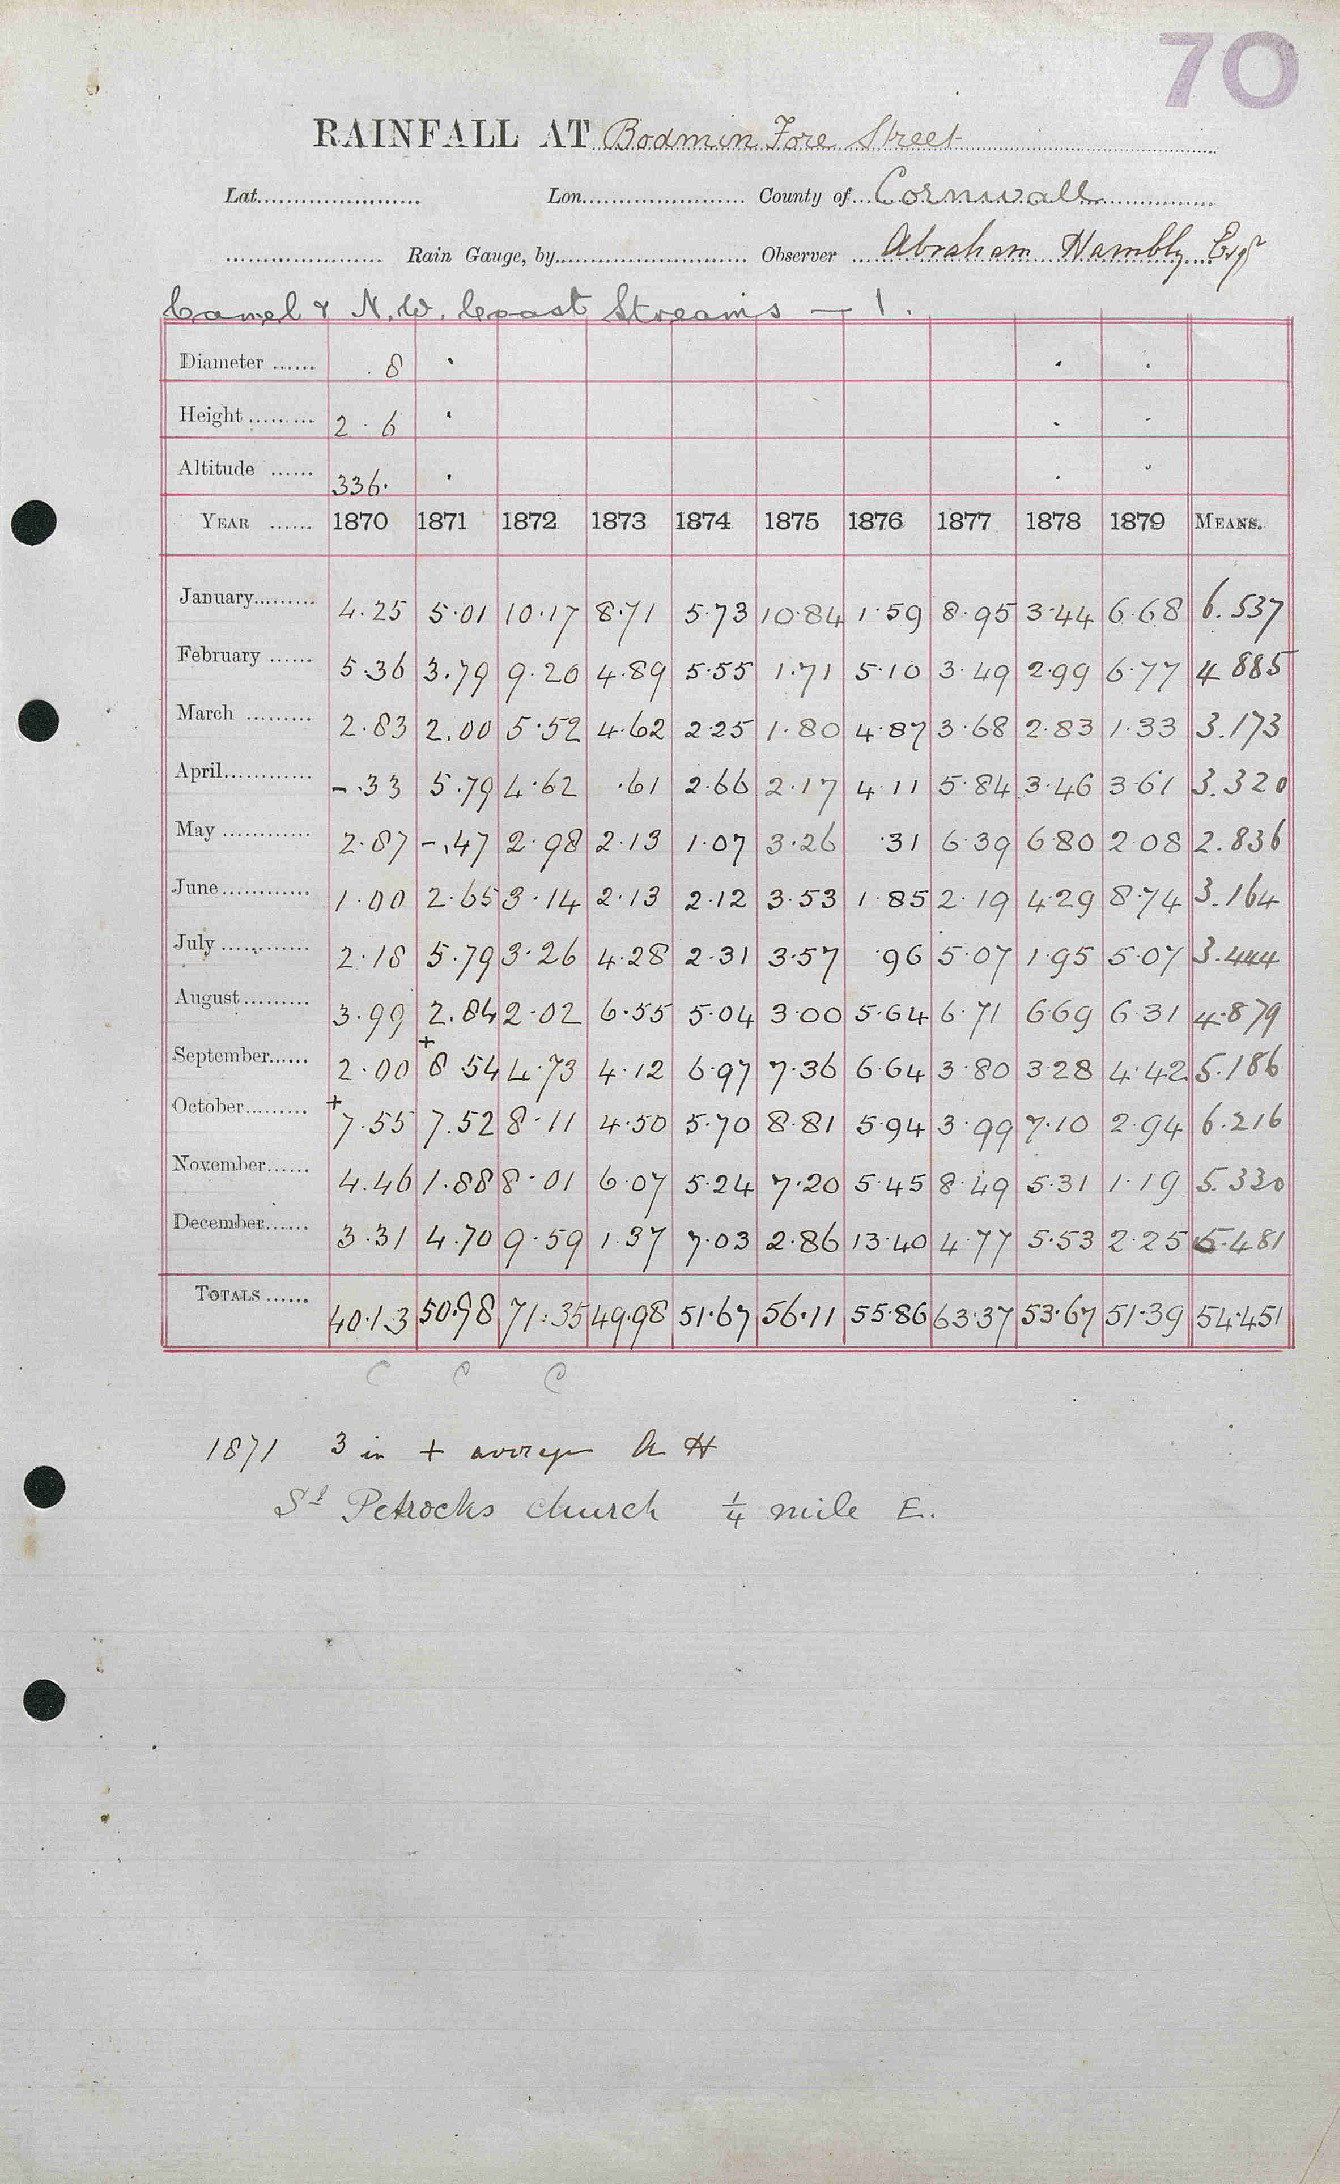 70
RAINFALL AT Bodmin Fore Street
Lat. Lon. County of Cornwall
Rain Gauge, by Observer Abraham Hambly Esqr
Camel & N.W. Coast Streams — 1.
Diameter 8 · · ·
Height 2 · 6 · · ·
Altitude 336. · · ·
YEAR 1870 1871 1872 1873 1874 1875 1876 1877 1878 1879 MEANS.
January 4.25 5.01 10.17 8.71 5.73 10.84 1.59 8.95 3.44 6.68 6.537
February 5.36 3.79 9.20 4.89 5.55 1.71 5.10 3.49 2.99 6.77 4.885
March 2.83 2.00 5.52 4.62 2.25 1.80 4.87 3.68 2.83 1.33 3.173
April -.33 5.79 4.62 .61 2.66 2.17 4.11 5.84 3.46 3.61 3.320
May 2.87 -.47 2.98 2.13 1.07 3.26 .31 6.39 6.80 2.08 2.836
June 1.00 2.65 3.14 2.13 2.12 3.53 1.85 2.19 4.29 8.74 3.164
July 2.18 5.79 3.26 4.28 2.31 3.57 .96 5.07 1.95 5.07 3.444
August 3.99 2.84 2.02 6.55 5.04 3.00 5.64 6.71 6.69 6.31 4.879
September 2.00 +8.54 4.73 4.12 6.97 7.36 6.64 3.80 3.28 4.42 5.186
October +7.55 7.52 8.11 4.50 5.70 8.81 5.94 3.99 7.10 2.94 6.216
November 4.46 1.88 8.01 6.07 5.24 7.20 5.45 8.49 5.31 1.19 5.330
December 3.31 4.70 9.59 1.37 7.03 2.86 13.40 4.77 5.53 2.25 5.481
TOTALS 40.13 50.98 71.35 49.98 51.67 56.11 55.86 63.37 53.67 51.39 54.451
C C C
1871 3 in + average A H
St Petrocks church ¼ mile E.